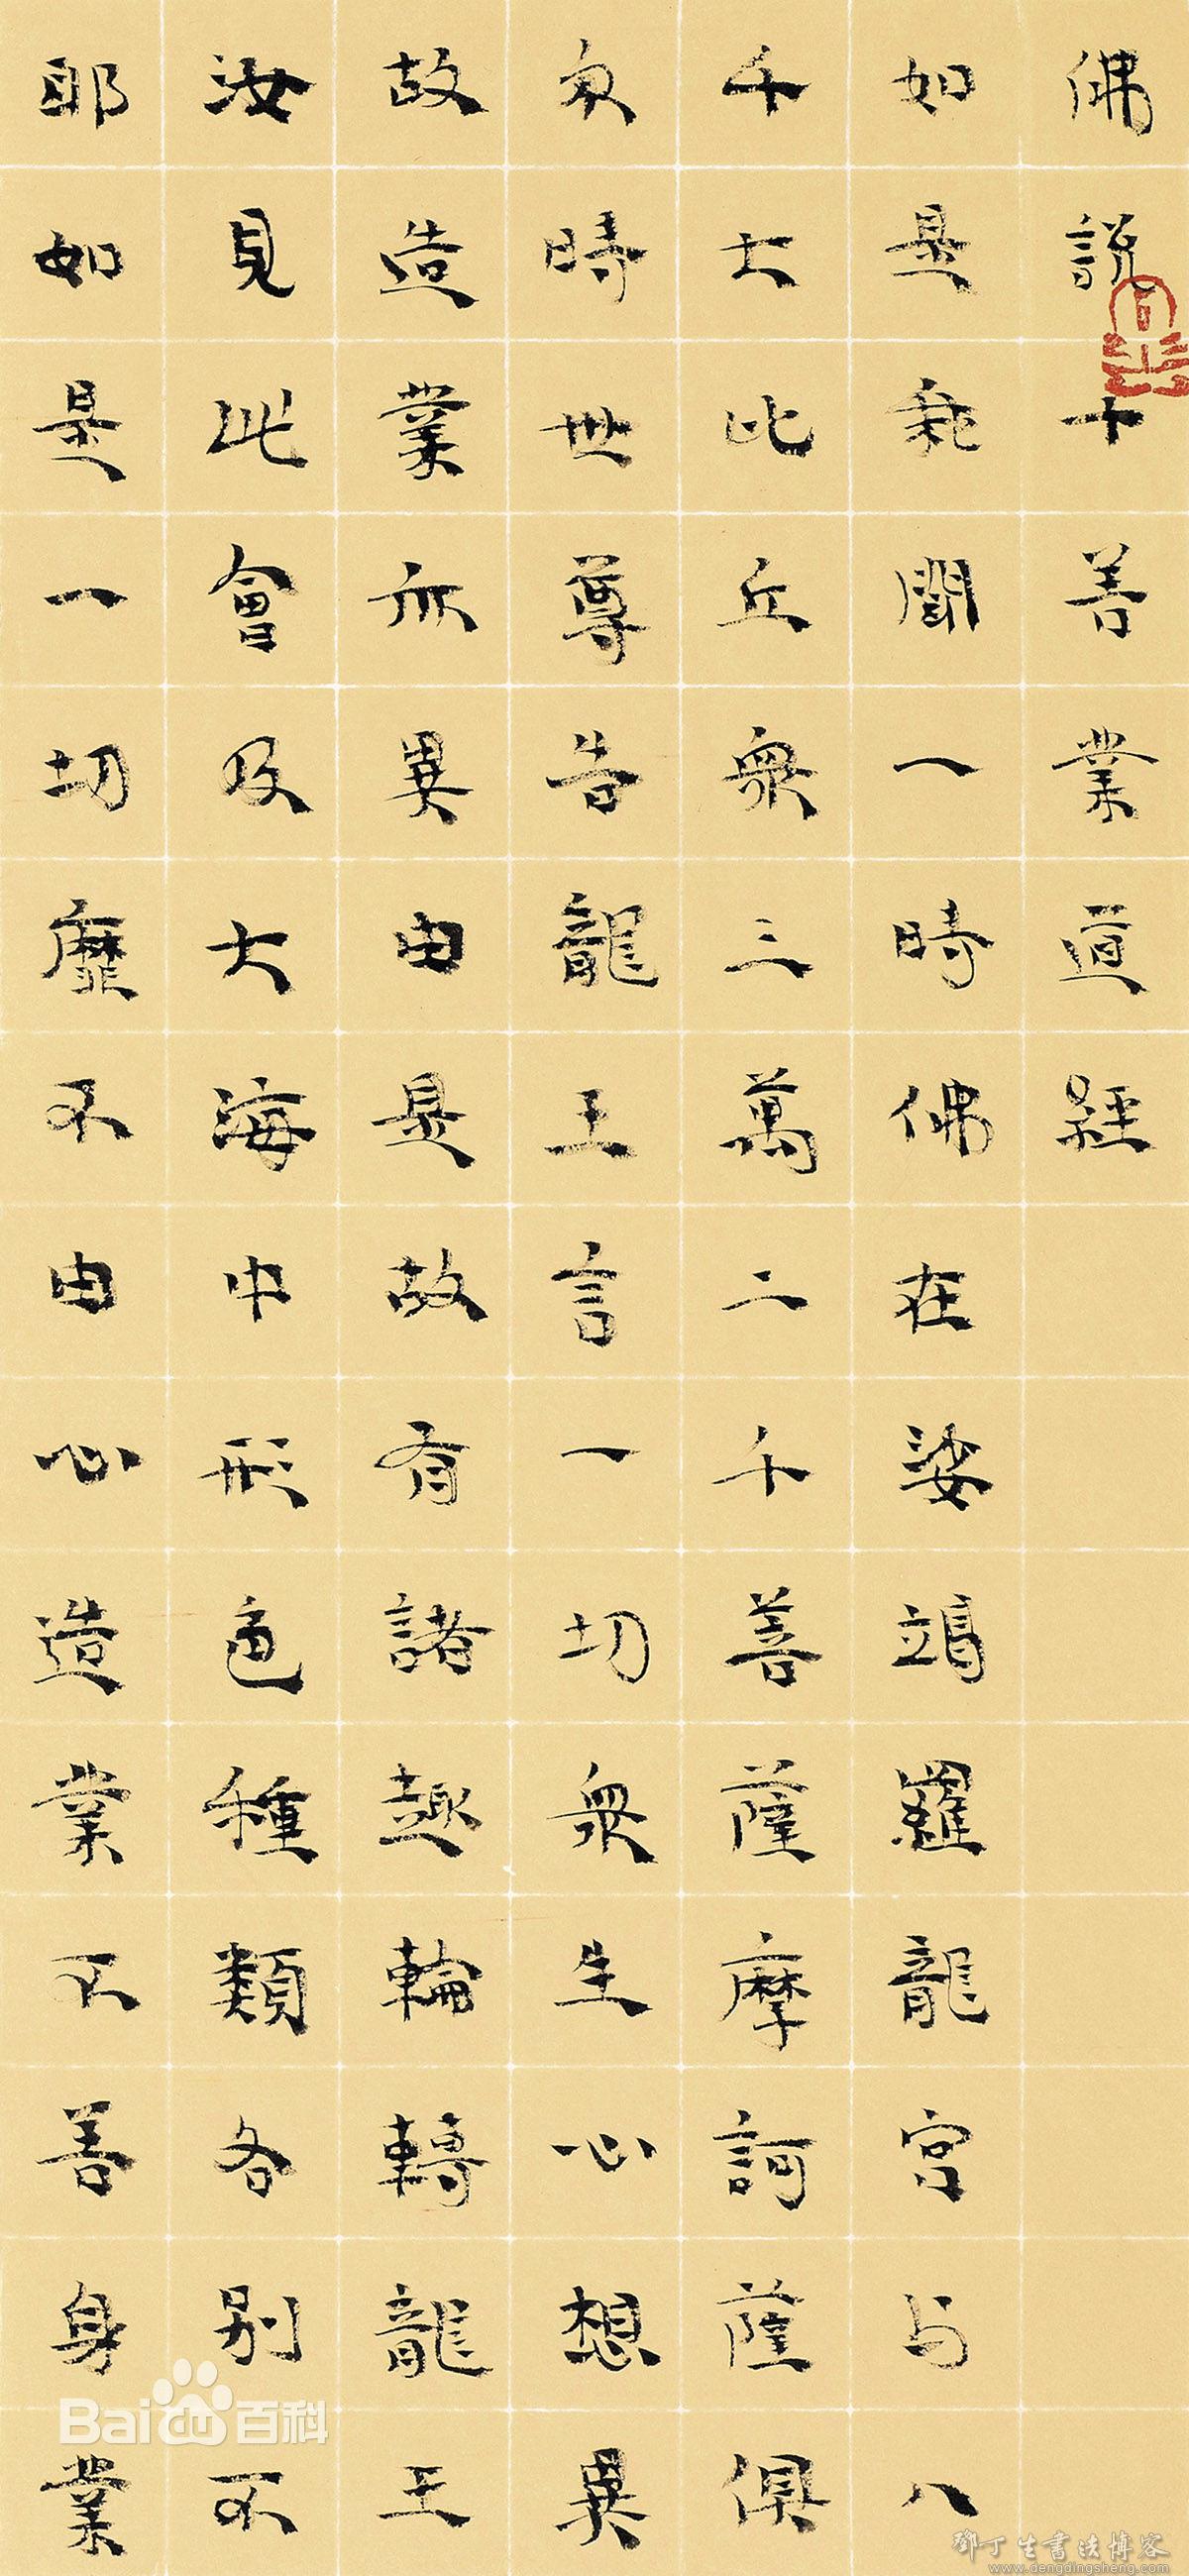 佛說十善業道経
如是我聞一時佛在娑竭羅龍宮与八
千大比丘衆三萬二千菩薩摩訶薩俱
尒時世尊告龍王言一切衆生心想異
故造業亦異由是故有諸趣輪轉龍王
汝見此會及大海中形色種類各別不
耶如是一切靡不由心造業不善身業
Baidu百科
鄧丁生書法博客
www.dengdingsheng.com